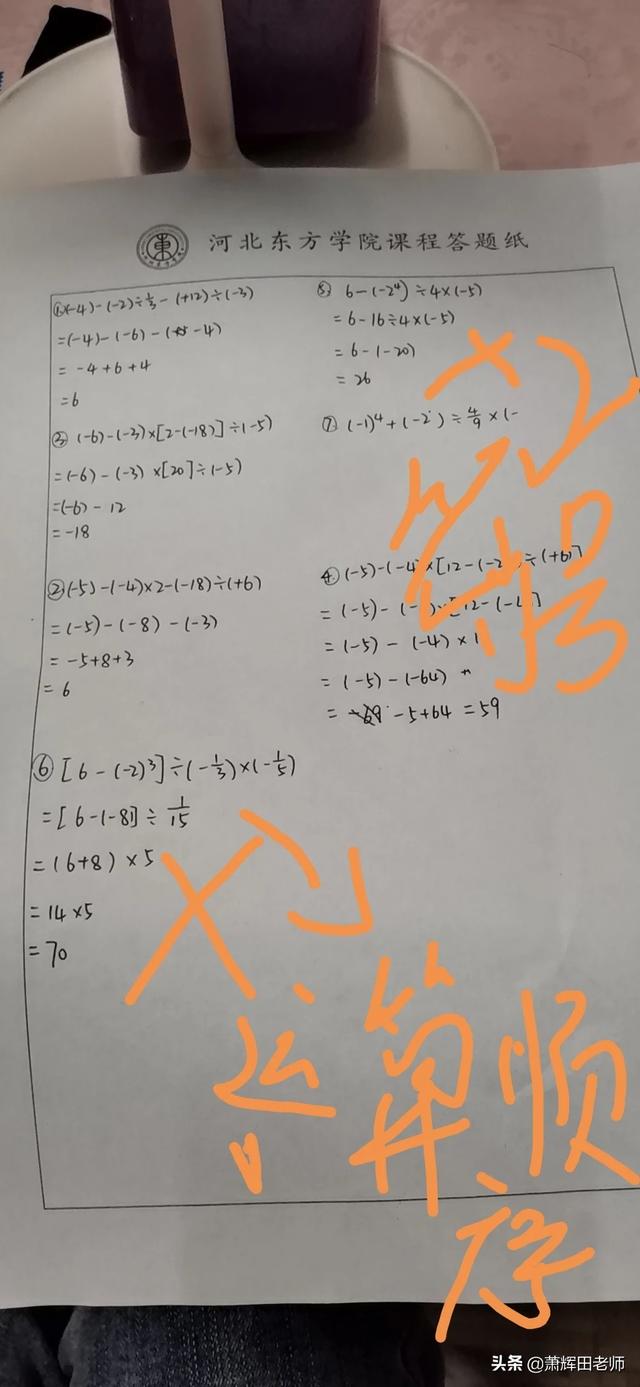 河北东方学院课程答题纸
①(-4)-(-2)÷⅓-(+12)÷(-3)
=(-4)-(-6)-(-4)
= -4+6+4
=6
③ (-6)-(-3)×[2-(-18)]÷(-5)
=(-6)-(-3)×[20]÷(-5)
=(-6)-12
=-18
②(-5)-(-4)×2-(-18)÷(+6)
=(-5)-(-8)-(-3)
= -5+8+3
= 6
⑥ [6-(-2)³]÷(-⅓)×(-⅕)
=[6-(-8)]÷1/15
=(6+8)×5
=14×5
=70
⑤ 6-(-2⁴)÷4×(-5)
= 6-16÷4×(-5)
= 6-(-20)
= 26
⑦ (-1)⁴+(-2)÷4/9×(-
④(-5)-(-4)×[12-(-2 ÷(+6)]
= (-5)-(- [12-(-
= (-5)-(-4)×1
= (-5)-(-64)
= -5+64=59
符号
运算顺
序
头条 @萧辉田老师